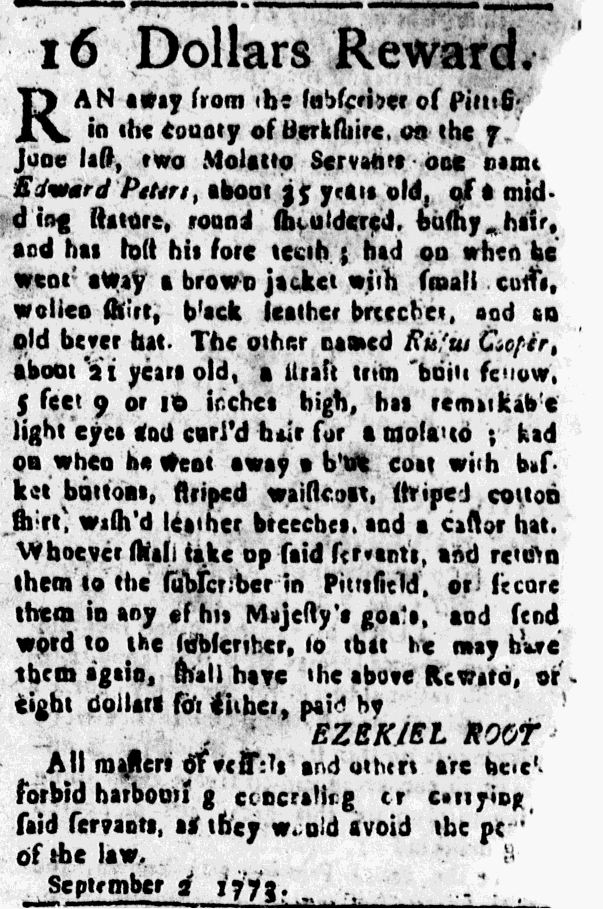 16 Dollars Reward.
RAN away from the ſubſcriber of Pittſ-
in the county of Berkſhire, on the 7
June laſt, two Molatto Servants one name
Edward Peters, about 35 years old, of a mid-
ding ſtature, round ſhouldered, buſhy hair,
and has loſt his fore teeth ; had on when he
went away a brown jacket with ſmall cuffs,
wollen ſhirt, black leather breeches, and an
old bever hat. The other named Rufus Cooper,
about 21 years old, a ſtraſt trim built fellow,
5 feet 9 or 10 inches high, has remarkable
light eyes and curl'd hair for a molatto ; had
on when he went away a blue coat with baſ-
ket buttons, ſtriped waiſtcoat, ſtriped cotton
ſhirt, waſh'd leather breeches, and a caſtor hat.
Whoever ſhall take up ſaid ſervants, and return
them to the ſubſcriber in Pittsfield, or ſecure
them in any of his Majeſty's goals, and ſend
word to the ſubſcriber, ſo that he may have
them again, ſhall have the above Reward, or
eight dollars for either, paid by
EZEKIEL ROOT
All maſters of veſſels and others are
forbid harbouring concealing or carrying
ſaid ſervants, as they would avoid the
of the law.
September 2 1773.